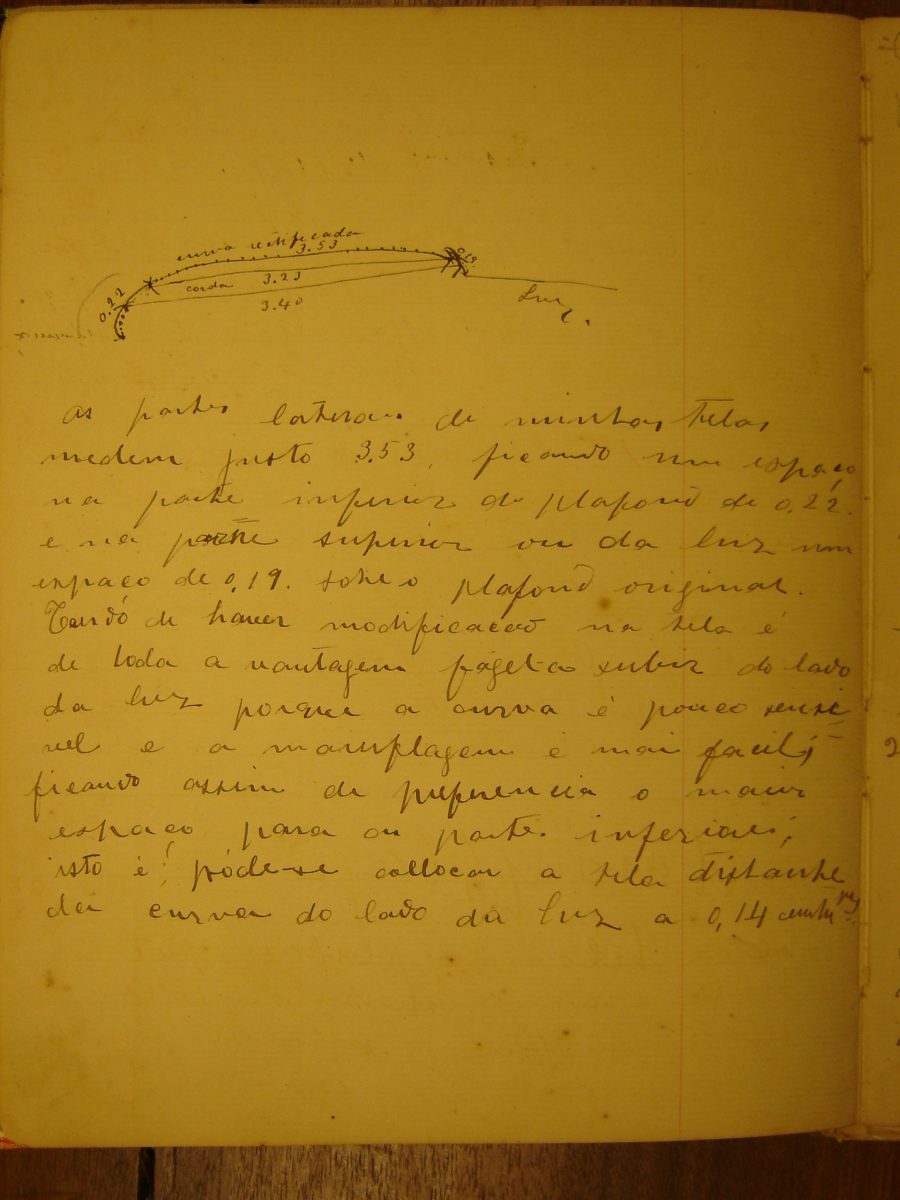 curva rectificada
3.53
0,19.
corda 3.23
0.22
3.40
Luz
As partes lateraes de minhas telas
medem justo 3.53, ficando um espaço
na parte inferior do plafond de 0,22.
e na parte superior ou da luz um
espaço de 0,19. sobre o plafond original.
Tendo de haver modificacaõ na tela é
de toda a vantagem subir do lado
da luz porque a curva é pouco sensi
vel e a marouflagem é mai facil;
ficando assim de preferencia o maior
espaço para as partes inferiores;
isto é; póde-se collocar a tela distante
da curva do lado da luz a 0,14